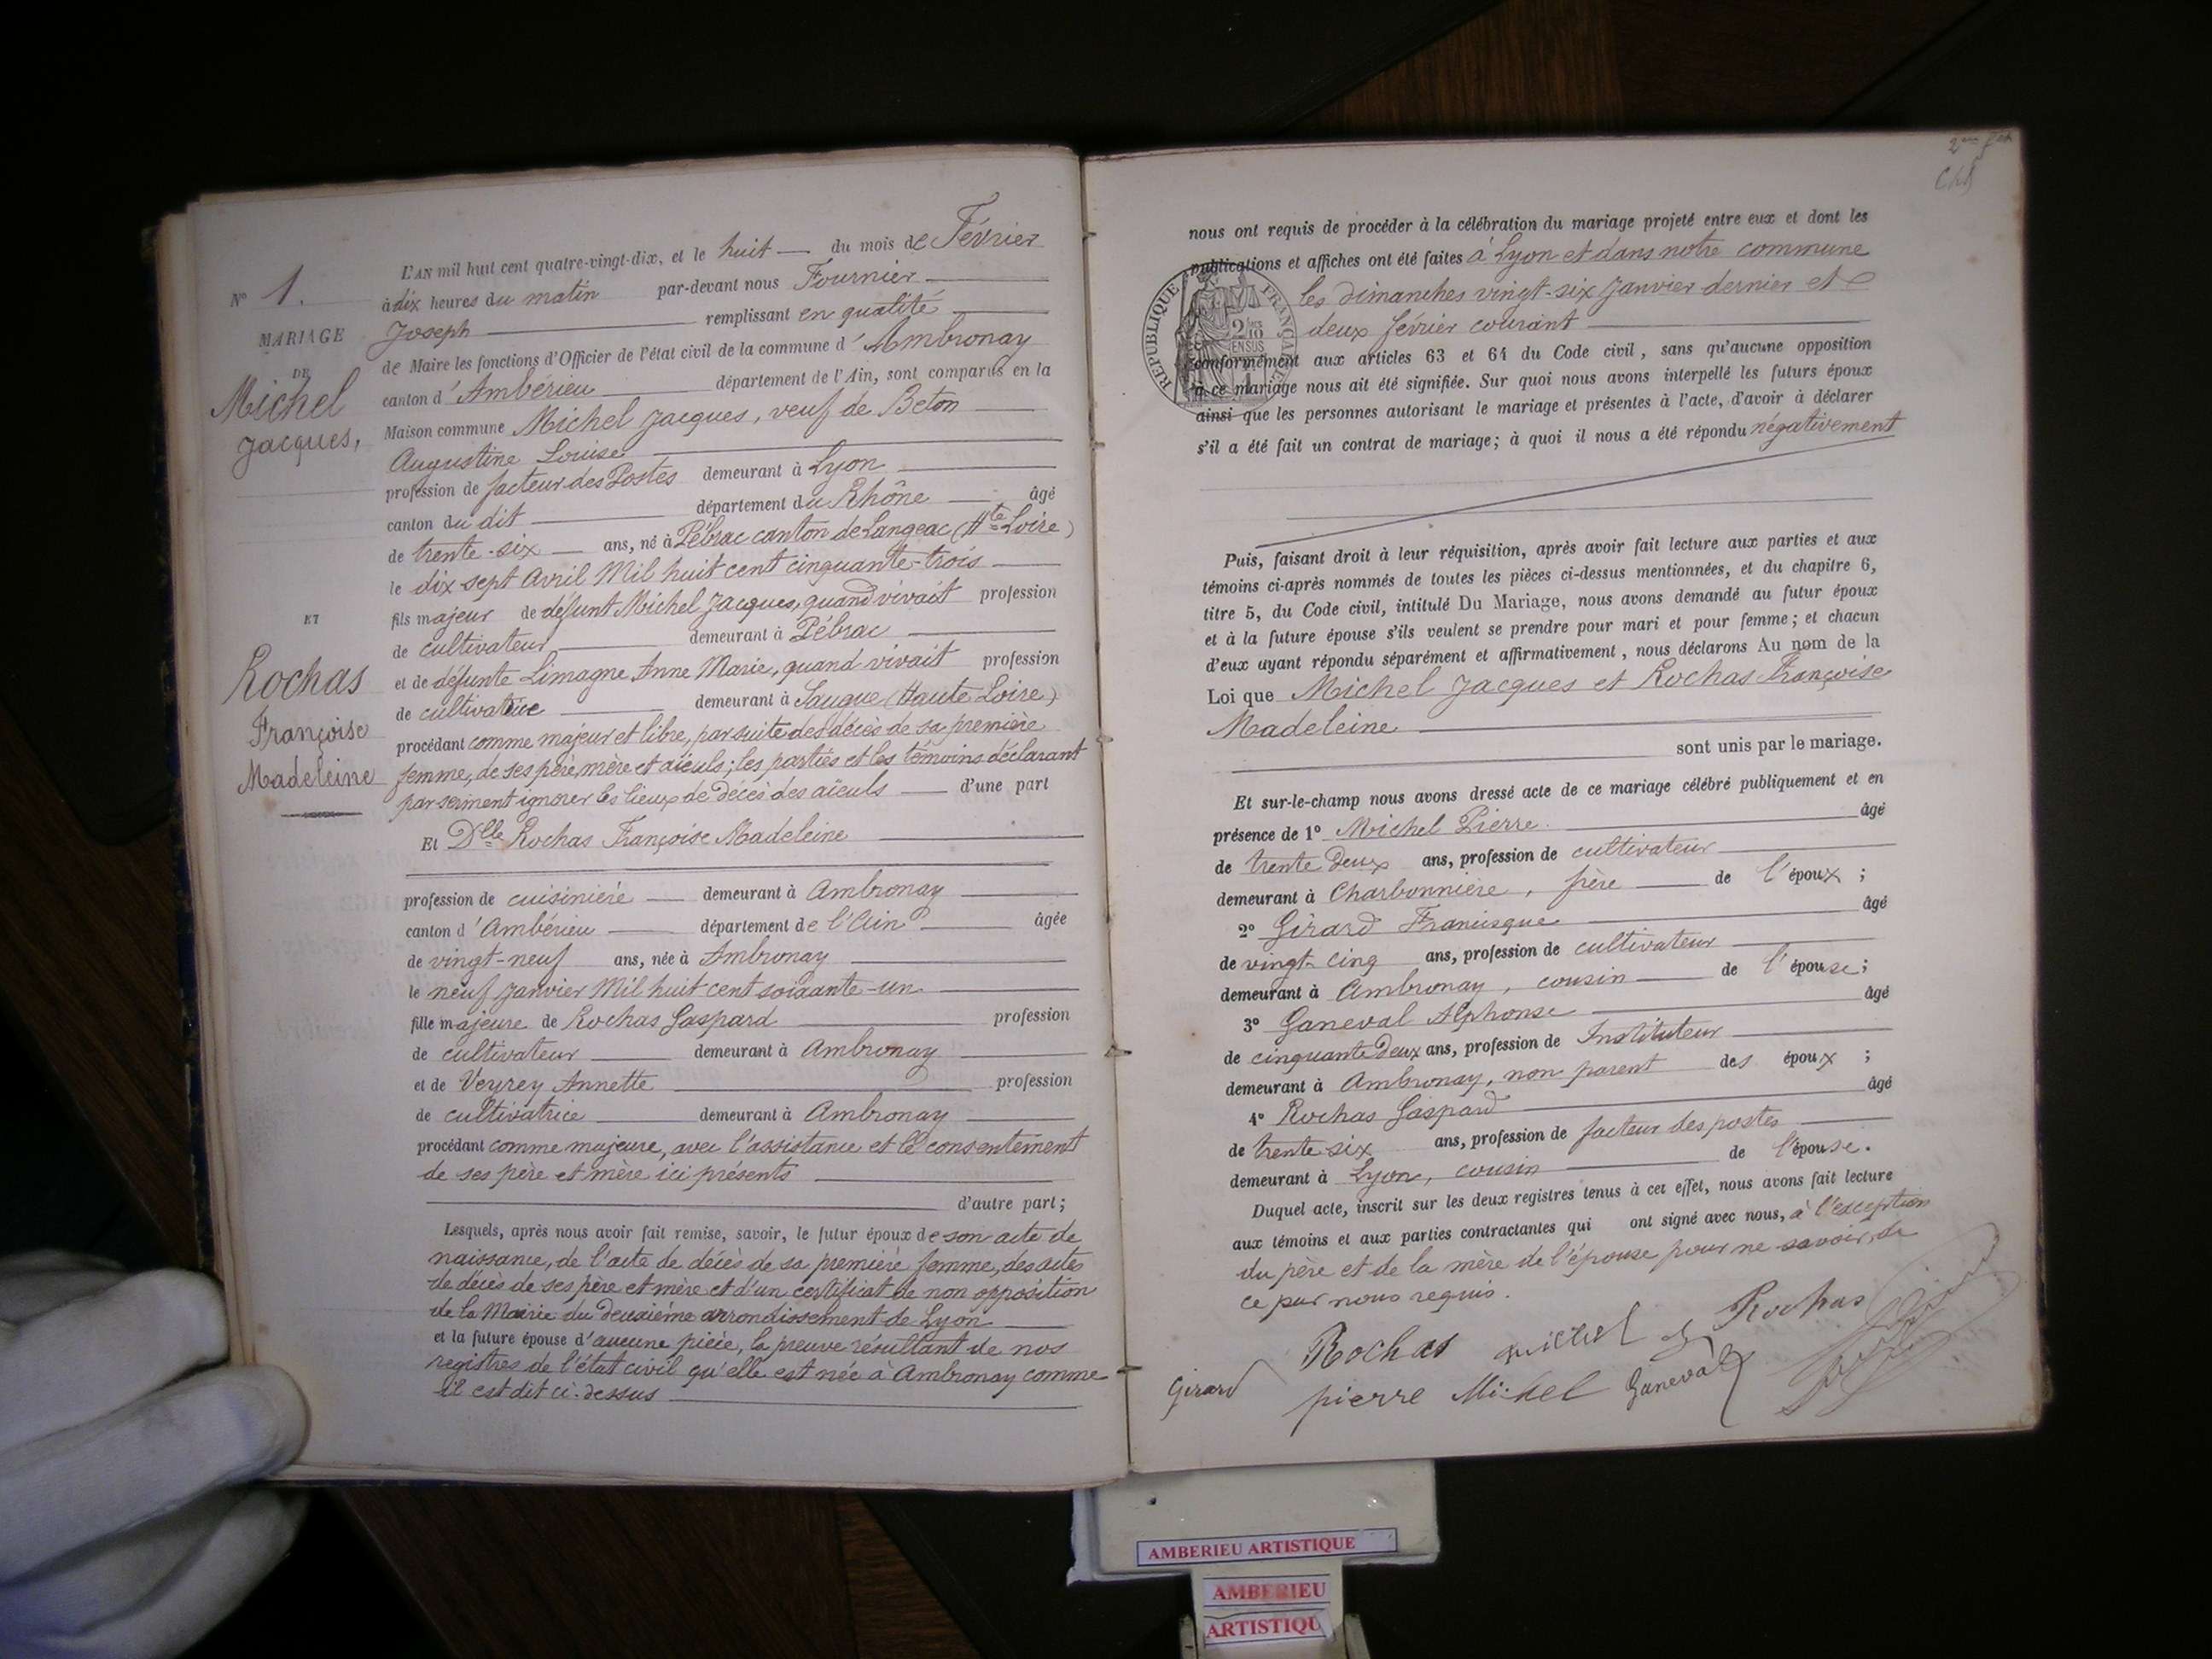 L'AN mil huit cent quatre-vingt-dix, et le huit du mois de Février
N° 1.
à dix heures du matin par-devant nous Fournier
MARIAGE
Joseph remplissant en qualité
de Maire les fonctions d'Officier de l'état civil de la commune d'Ambronay
DE
canton d'Ambérieu département de l'Ain, sont comparus en la
Michel
Jacques,
Maison commune Michel Jacques, veuf de Beton
Augustine Louise
profession de facteur des Postes demeurant à Lyon
canton du dit département du Rhône âgé
de trente-six ans, né à Pébrac canton de Langeac (Hte Loire)
le dix sept Avril Mil huit cent cinquante-trois
ET
fils majeur de défunt Michel Jacques, quand vivait profession
de cultivateur demeurant à Pébrac
Rochas
Françoise
Madeleine
et de défunte Limagne Anne Marie, quand vivait profession
de cultivatrice demeurant à Saugue (Haute Loire)
procédant comme majeur et libre, par suite des décès de sa première
femme, de ses père, mère et aïeuls; les parties et les témoins déclarant
par serment ignorer les lieux de décès des aïeuls d'une part
Et Dlle Rochas Françoise Madeleine
profession de cuisinière demeurant à Ambronay
canton d'Ambérieu département de l'Ain âgée
de vingt-neuf ans, née à Ambronay
le neuf Janvier Mil huit cent soixante-un
fille majeure de Rochas Gaspard profession
de cultivateur demeurant à Ambronay
et de Veyrey Annette profession
de cultivatrice demeurant à Ambronay
procédant comme majeure, avec l'assistance et le consentement
de ses père et mère ici présents
d'autre part;
Lesquels, après nous avoir fait remise, savoir, le futur époux de son acte de
naissance, de l'acte de décès de sa première femme, des actes
de décès de ses père et mère et d'un certificat de non opposition
de la Mairie du deuxième arrondissement de Lyon
et la future épouse d'aucune pièce, la preuve résultant de nos
registres de l'état civil qu'elle est née à Ambronay comme
il est dit ci-dessus
nous ont requis de procéder à la célébration du mariage projeté entre eux et dont les
publications et affiches ont été faites à Lyon et dans notre commune
les dimanches vingt-six Janvier dernier et
deux février courant
RÉPUBLIQUE FRANÇAISE
2/10 EN SUS
conformément aux articles 63 et 64 du Code civil, sans qu'aucune opposition
à ce mariage nous ait été signifiée. Sur quoi nous avons interpellé les futurs époux
ainsi que les personnes autorisant le mariage et présentes à l'acte, d'avoir à déclarer
s'il a été fait un contrat de mariage; à quoi il nous a été répondu négativement
Puis, faisant droit à leur réquisition, après avoir fait lecture aux parties et aux
témoins ci-après nommés de toutes les pièces ci-dessus mentionnées, et du chapitre 6,
titre 5, du Code civil, intitulé Du Mariage, nous avons demandé au futur époux
et à la future épouse s'ils veulent se prendre pour mari et pour femme; et chacun
d'eux ayant répondu séparément et affirmativement, nous déclarons Au nom de la
Loi que Michel Jacques et Rochas Françoise
Madeleine
sont unis par le mariage.
Et sur-le-champ nous avons dressé acte de ce mariage célébré publiquement et en
présence de 1° Michel Pierre âgé
de trente deux ans, profession de cultivateur
demeurant à Charbonnière, frère de l'époux;
2° Girard Francisque âgé
de vingt-cinq ans, profession de cultivateur
demeurant à Ambronay, cousin de l'épouse;
3° Ganeval Alphonse âgé
de cinquante deux ans, profession de Instituteur
demeurant à Ambronay, non parent des époux;
4° Rochas Gaspard âgé
de trente six ans, profession de facteur des postes
demeurant à Lyon, cousin de l'épouse.
Duquel acte, inscrit sur les deux registres tenus à cet effet, nous avons fait lecture
aux témoins et aux parties contractantes qui ont signé avec nous, à l'exception
du père et de la mère de l'épouse pour ne savoir, de
ce par nous requis.
Rochas michel Rochas
Girard pierre Michel Ganeval
AMBERIEU ARTISTIQUE
AMBERIEU
ARTISTIQU